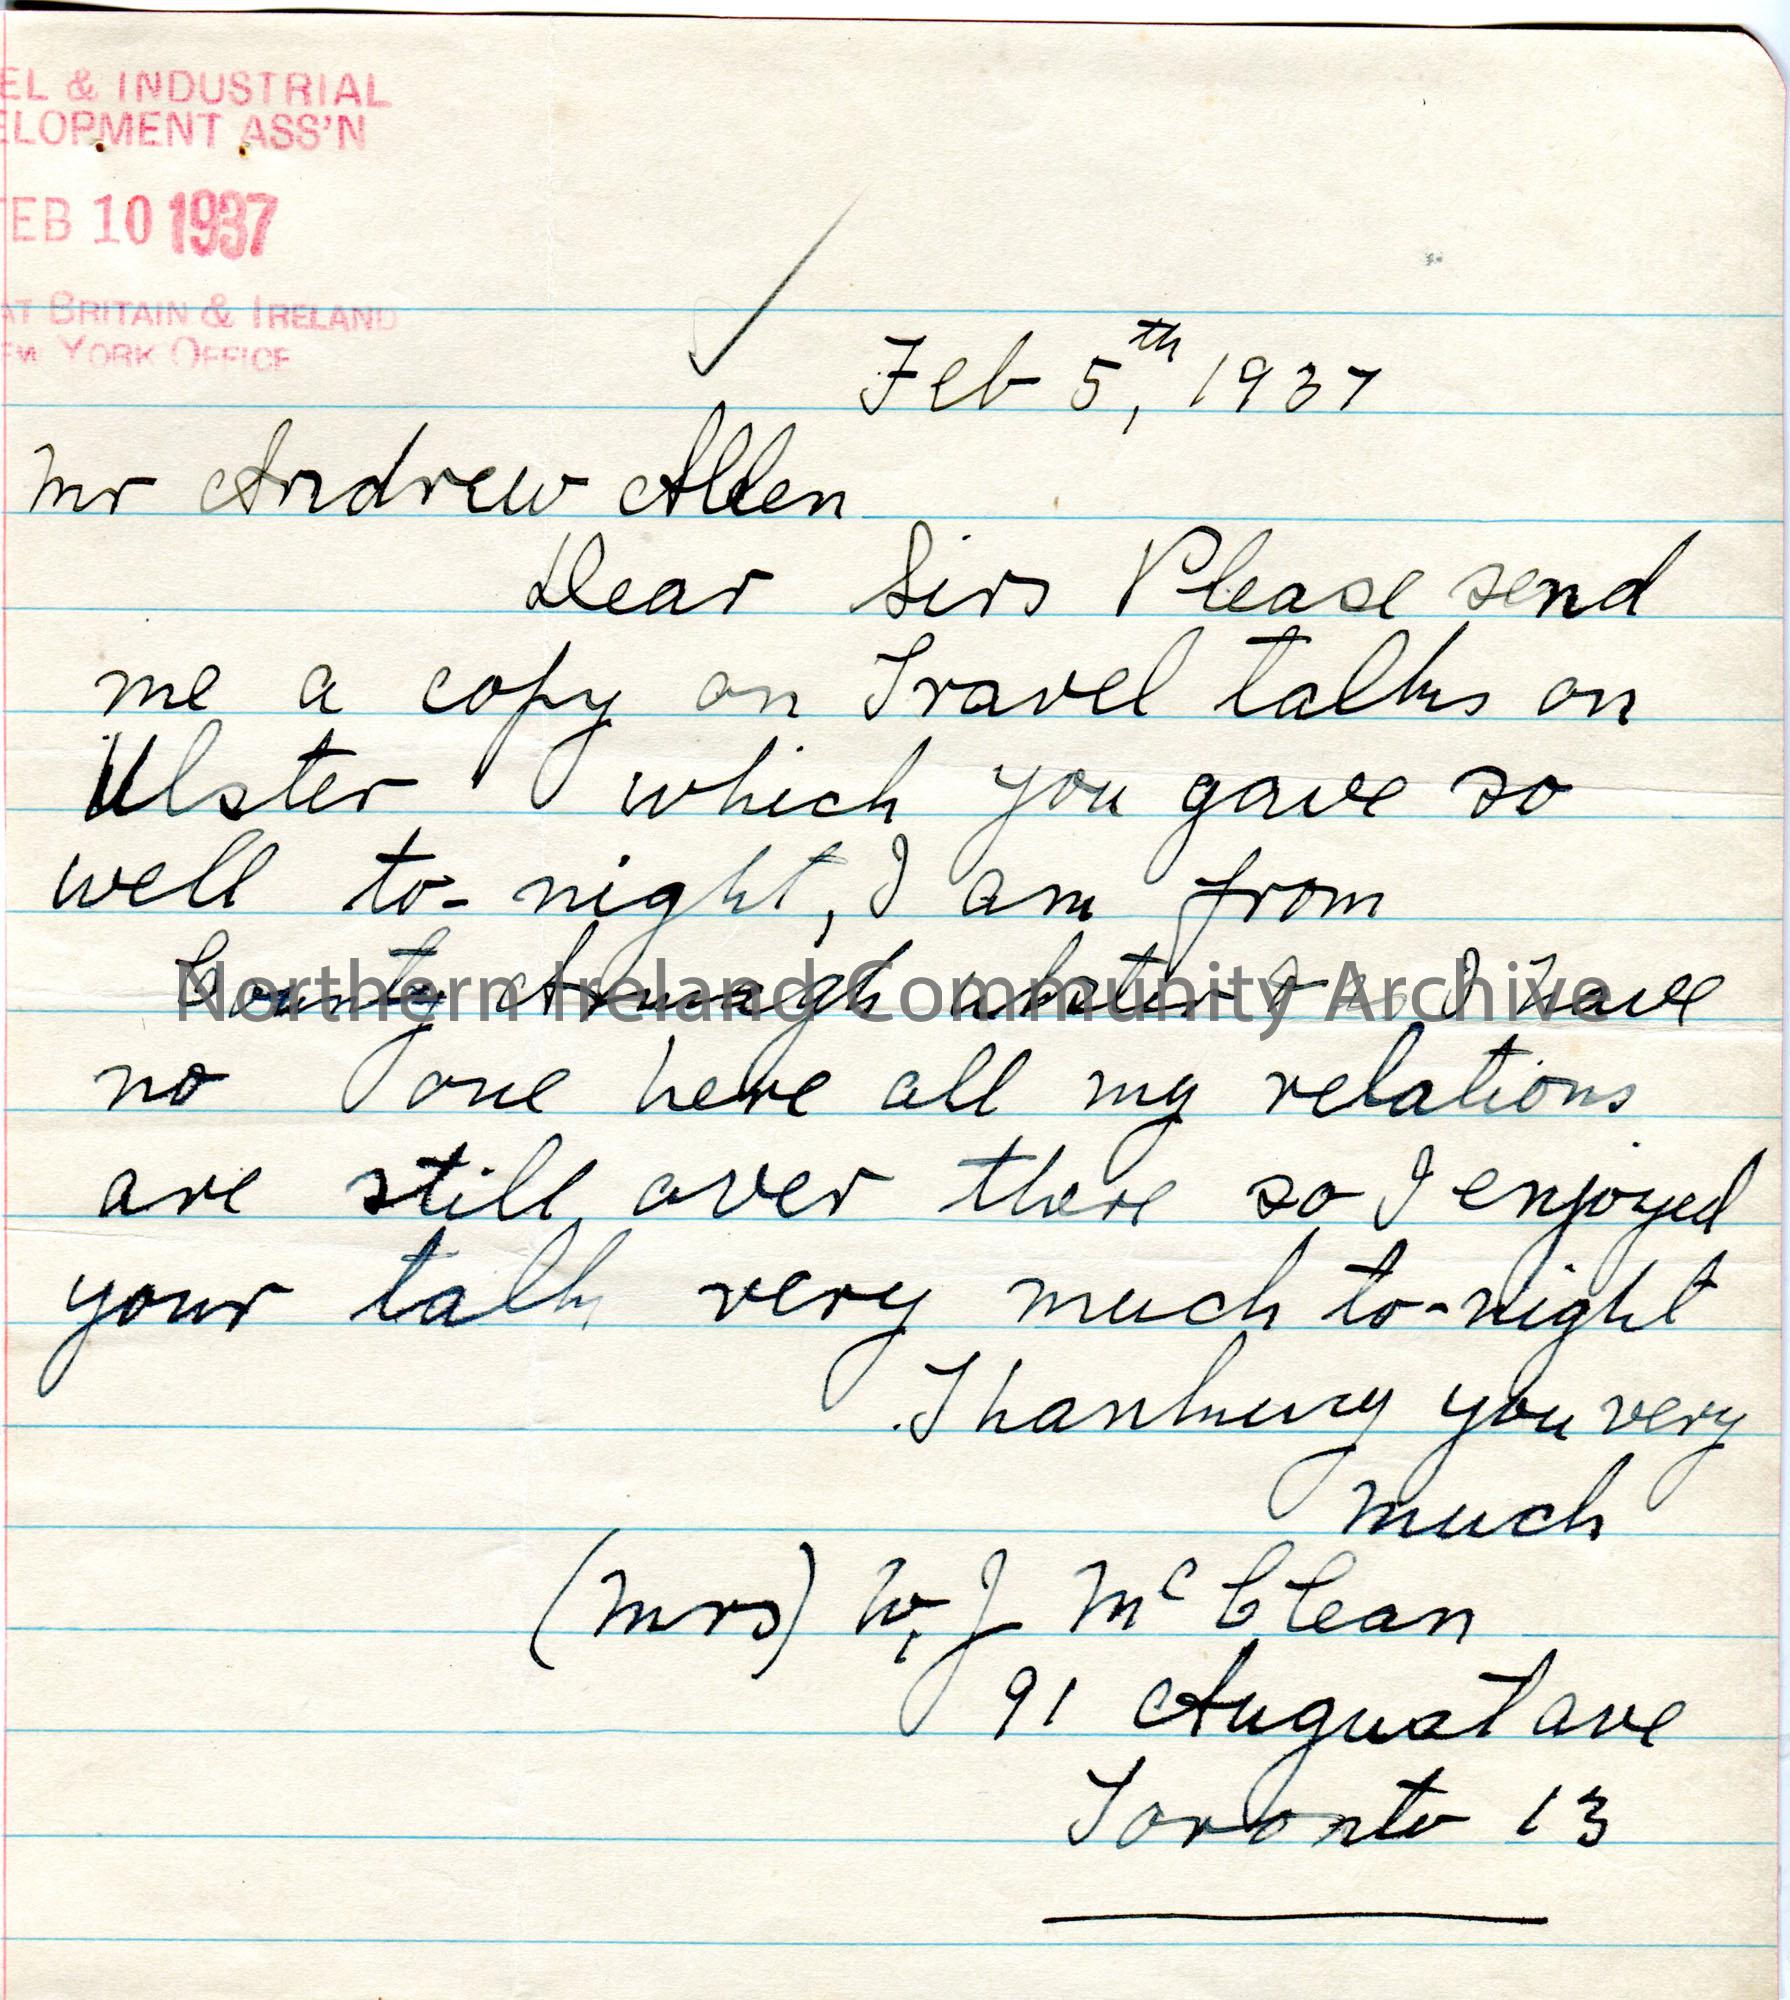 EL & INDUSTRIAL
ELOPMENT ASS'N
FEB 10 1937
AT BRITAIN & IRELAND
EW YORK OFFICE
Feb 5th, 1937
Mr Andrew Allen
Dear Sirs Please send
me a copy on Travel talks on
Ulster which you gave so
well to-night, I am from
County Armagh ulster & I have
no one here all my relations
are still over there so I enjoyed
your talk very much to-night
Thanking you very
much
(Mrs) W. J McClean
91 August ave
Toronto 13
Northern Ireland Community Archive